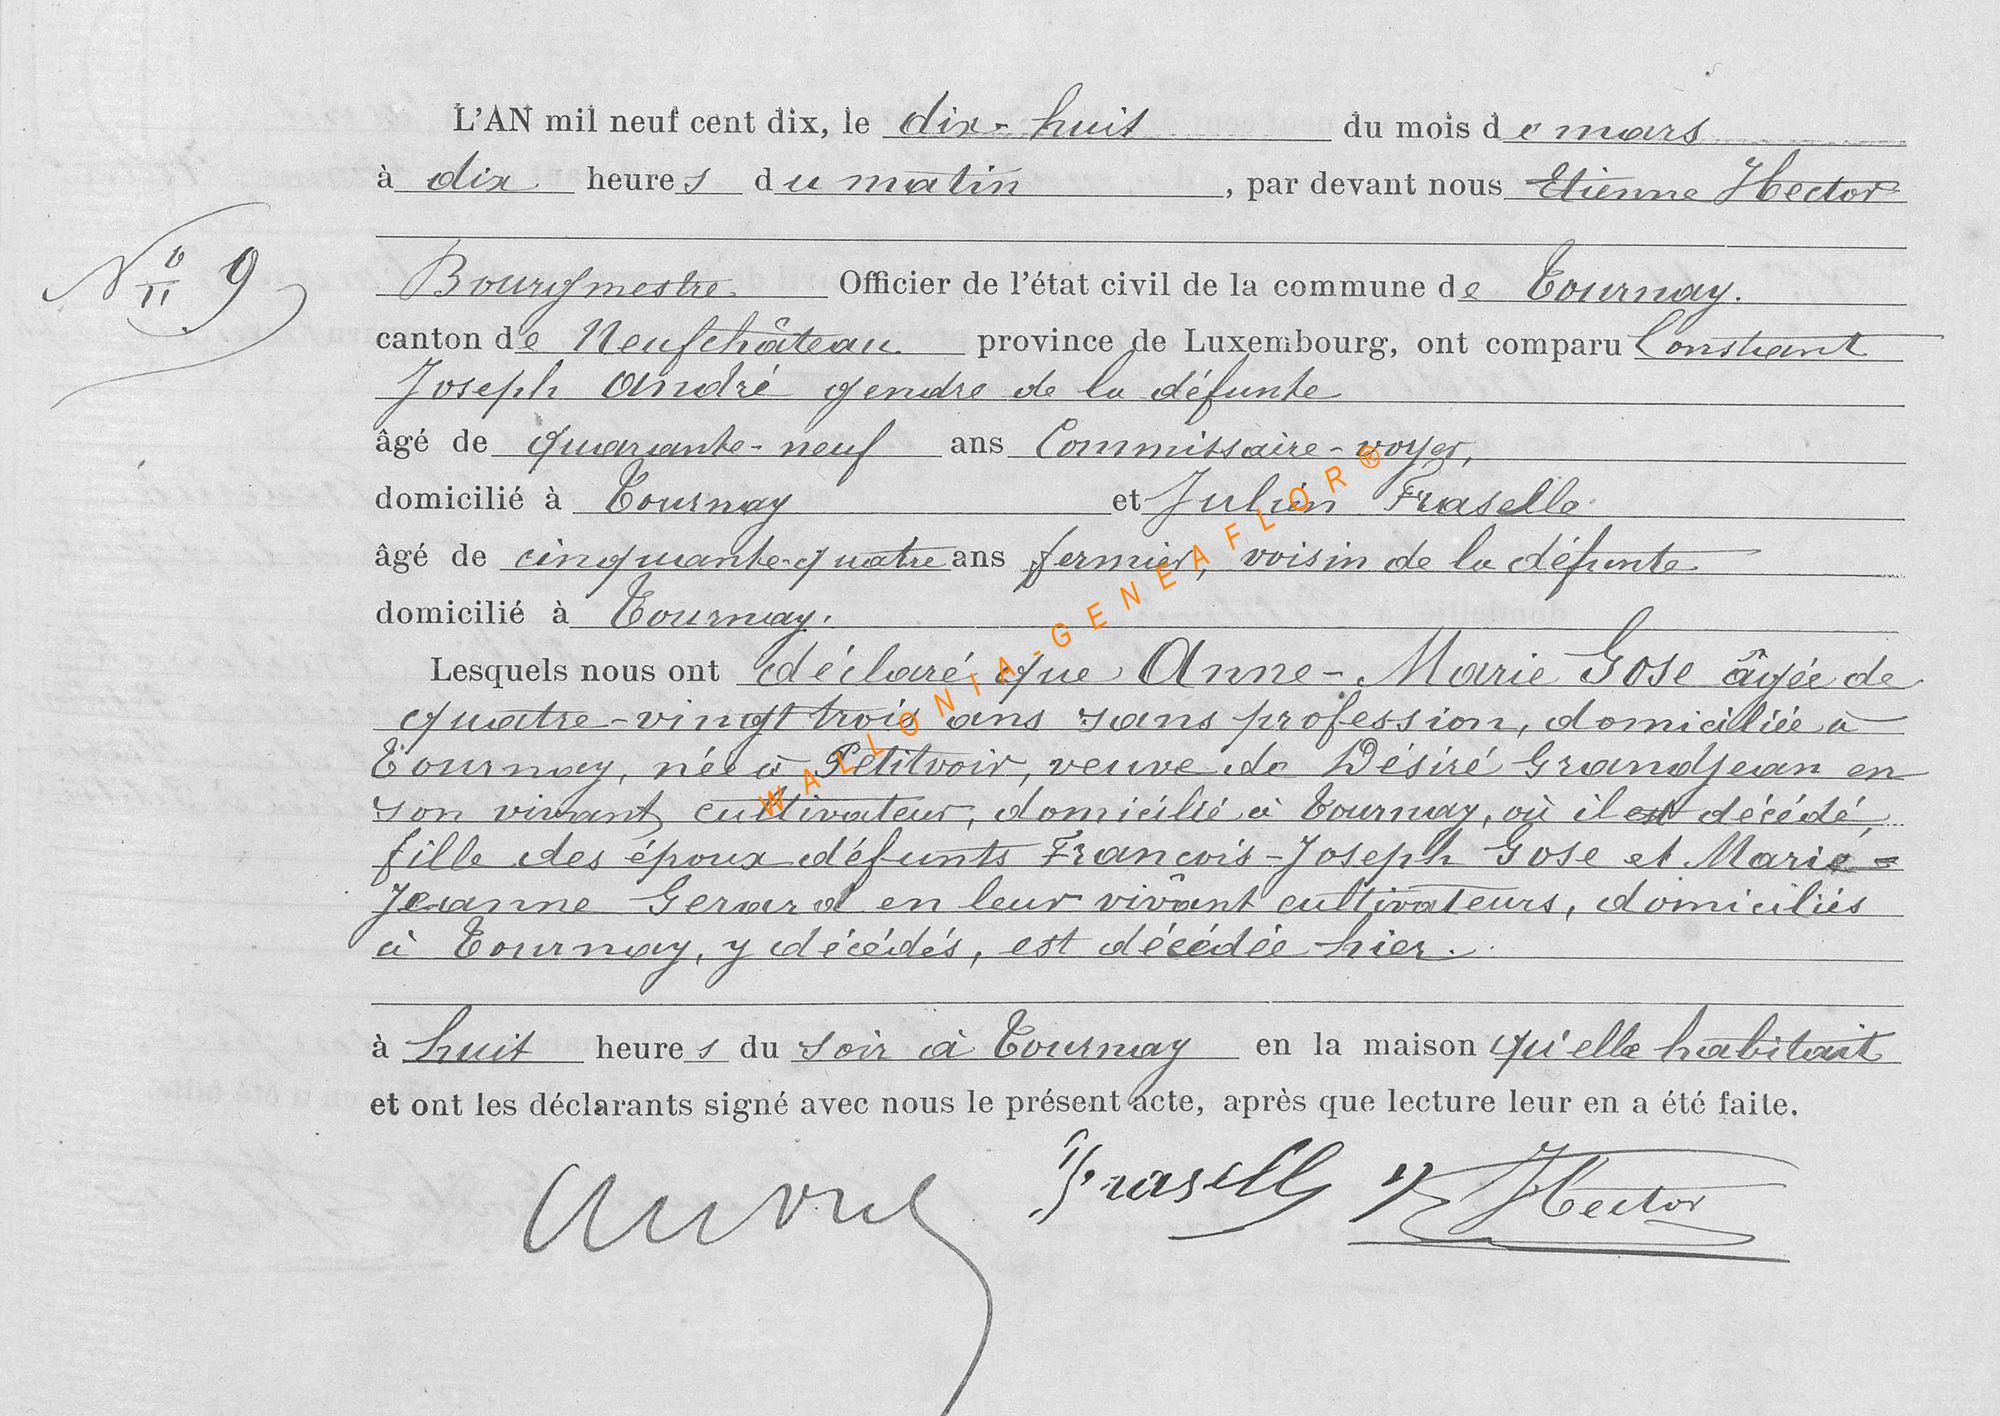 L'AN mil neuf cent dix, le dix-huit du mois de mars
à dix heures du matin, par devant nous Etienne Hector
N° 9
Bourgmestre Officier de l'état civil de la commune de Tournay.
canton de Neufchâteau province de Luxembourg, ont comparu Constant
Joseph André gendre de la défunte
âgé de quarante-neuf ans Commissaire-voyer,
domicilié à Tournay et Julien Fraselle
âgé de cinquante-quatre ans fermier, voisin de la défunte
domicilié à Tournay.
Lesquels nous ont déclaré que Anne-Marie Gose âgée de
quatre-vingt trois ans sans profession, domiciliée à
Tournay, née à Petitvoir, veuve de Désiré Grandjean en
son vivant cultivateur, domicilié à Tournay, où il est décédé,
fille des époux défunts François-Joseph Gose et Marie-
Jeanne Gerard en leur vivant cultivateurs, domiciliés
à Tournay, y décédés, est décédée hier.
à huit heures du soir à Tournay en la maison qu'elle habitait
et ont les déclarants signé avec nous le présent acte, après que lecture leur en a été faite.
André Fraselle Hector
WALLONIA-GENEAFLOR®